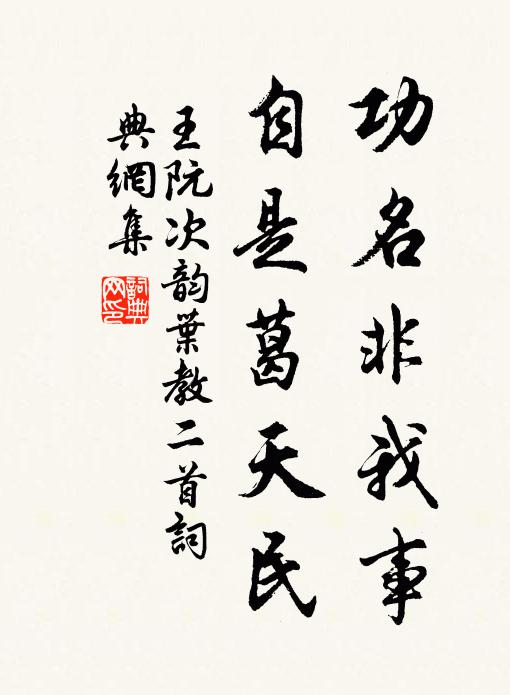 功名非我事
自是葛天民
王阮次韵葉教二首詞
典網集
詞典网印